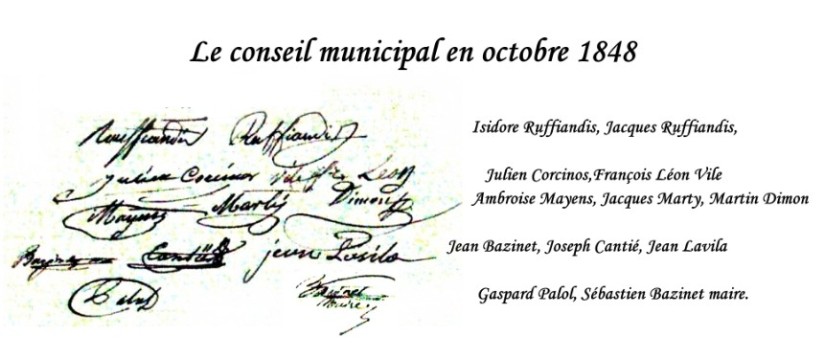 Le conseil municipal en octobre 1848
Rouffiandis Ruffiandis Isidore Ruffiandis, Jacques Ruffiandis,
Julien Corcinos Vile frs Léon Julien Corcinos,François Léon Vile
Mayens Marty Dimon Ambroise Mayens, Jacques Marty, Martin Dimon
Bazinet Cantié jean Jean Bazinet, Joseph Cantié, Jean Lavila
Palol Bazinet Gaspard Palol, Sébastien Bazinet maire.
maire